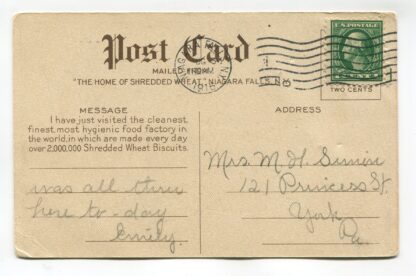 Post Card
MAILED FROM
"THE HOME OF SHREDDED WHEAT," NIAGARA FALLS, N.Y.
U.S. POSTAGE
TWO CENTS
MESSAGE
I have just visited the cleanest,
finest, most hygienic food factory in
the world, in which are made every day
over 2,000,000 Shredded Wheat Biscuits.
was all thru
here to-day
Emily.
ADDRESS
Mrs. M. H.
121 Princess St.
York
Pa.